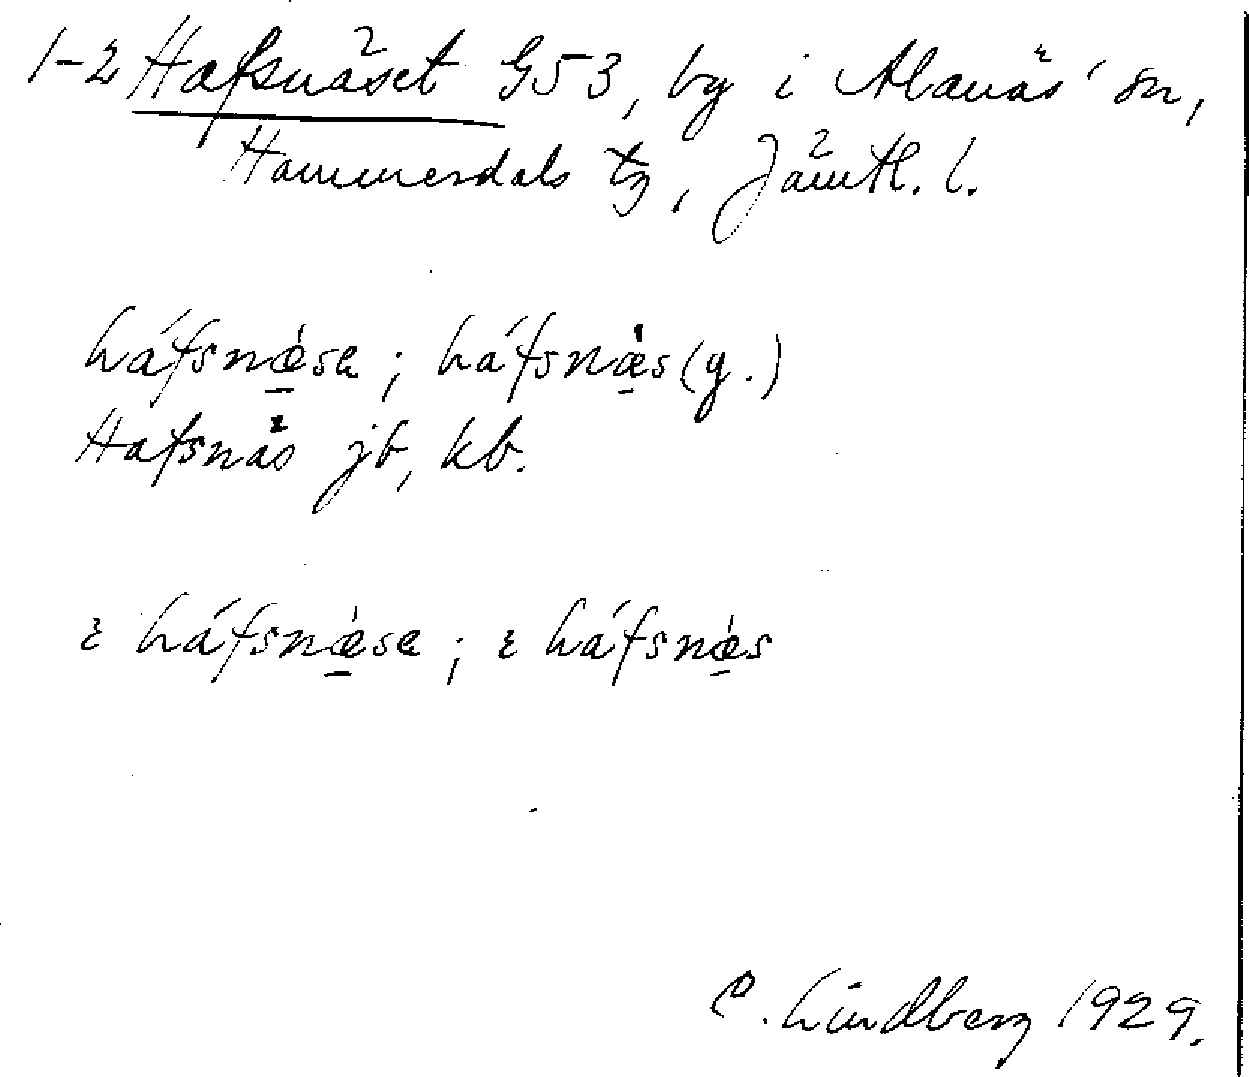 1-2 Hafsnäset G53, by i Alanäs' sn,
Hammerdals tg, Jämtl. l.
háfsnæ̱̀sɐ; háfsnæ̱̀s (g.)
Hafsnäs jb, kb.
ɛ háfsnæ̱̀sɐ; ɛ háfsnæ̱̀s
C. Lindberg 1929.